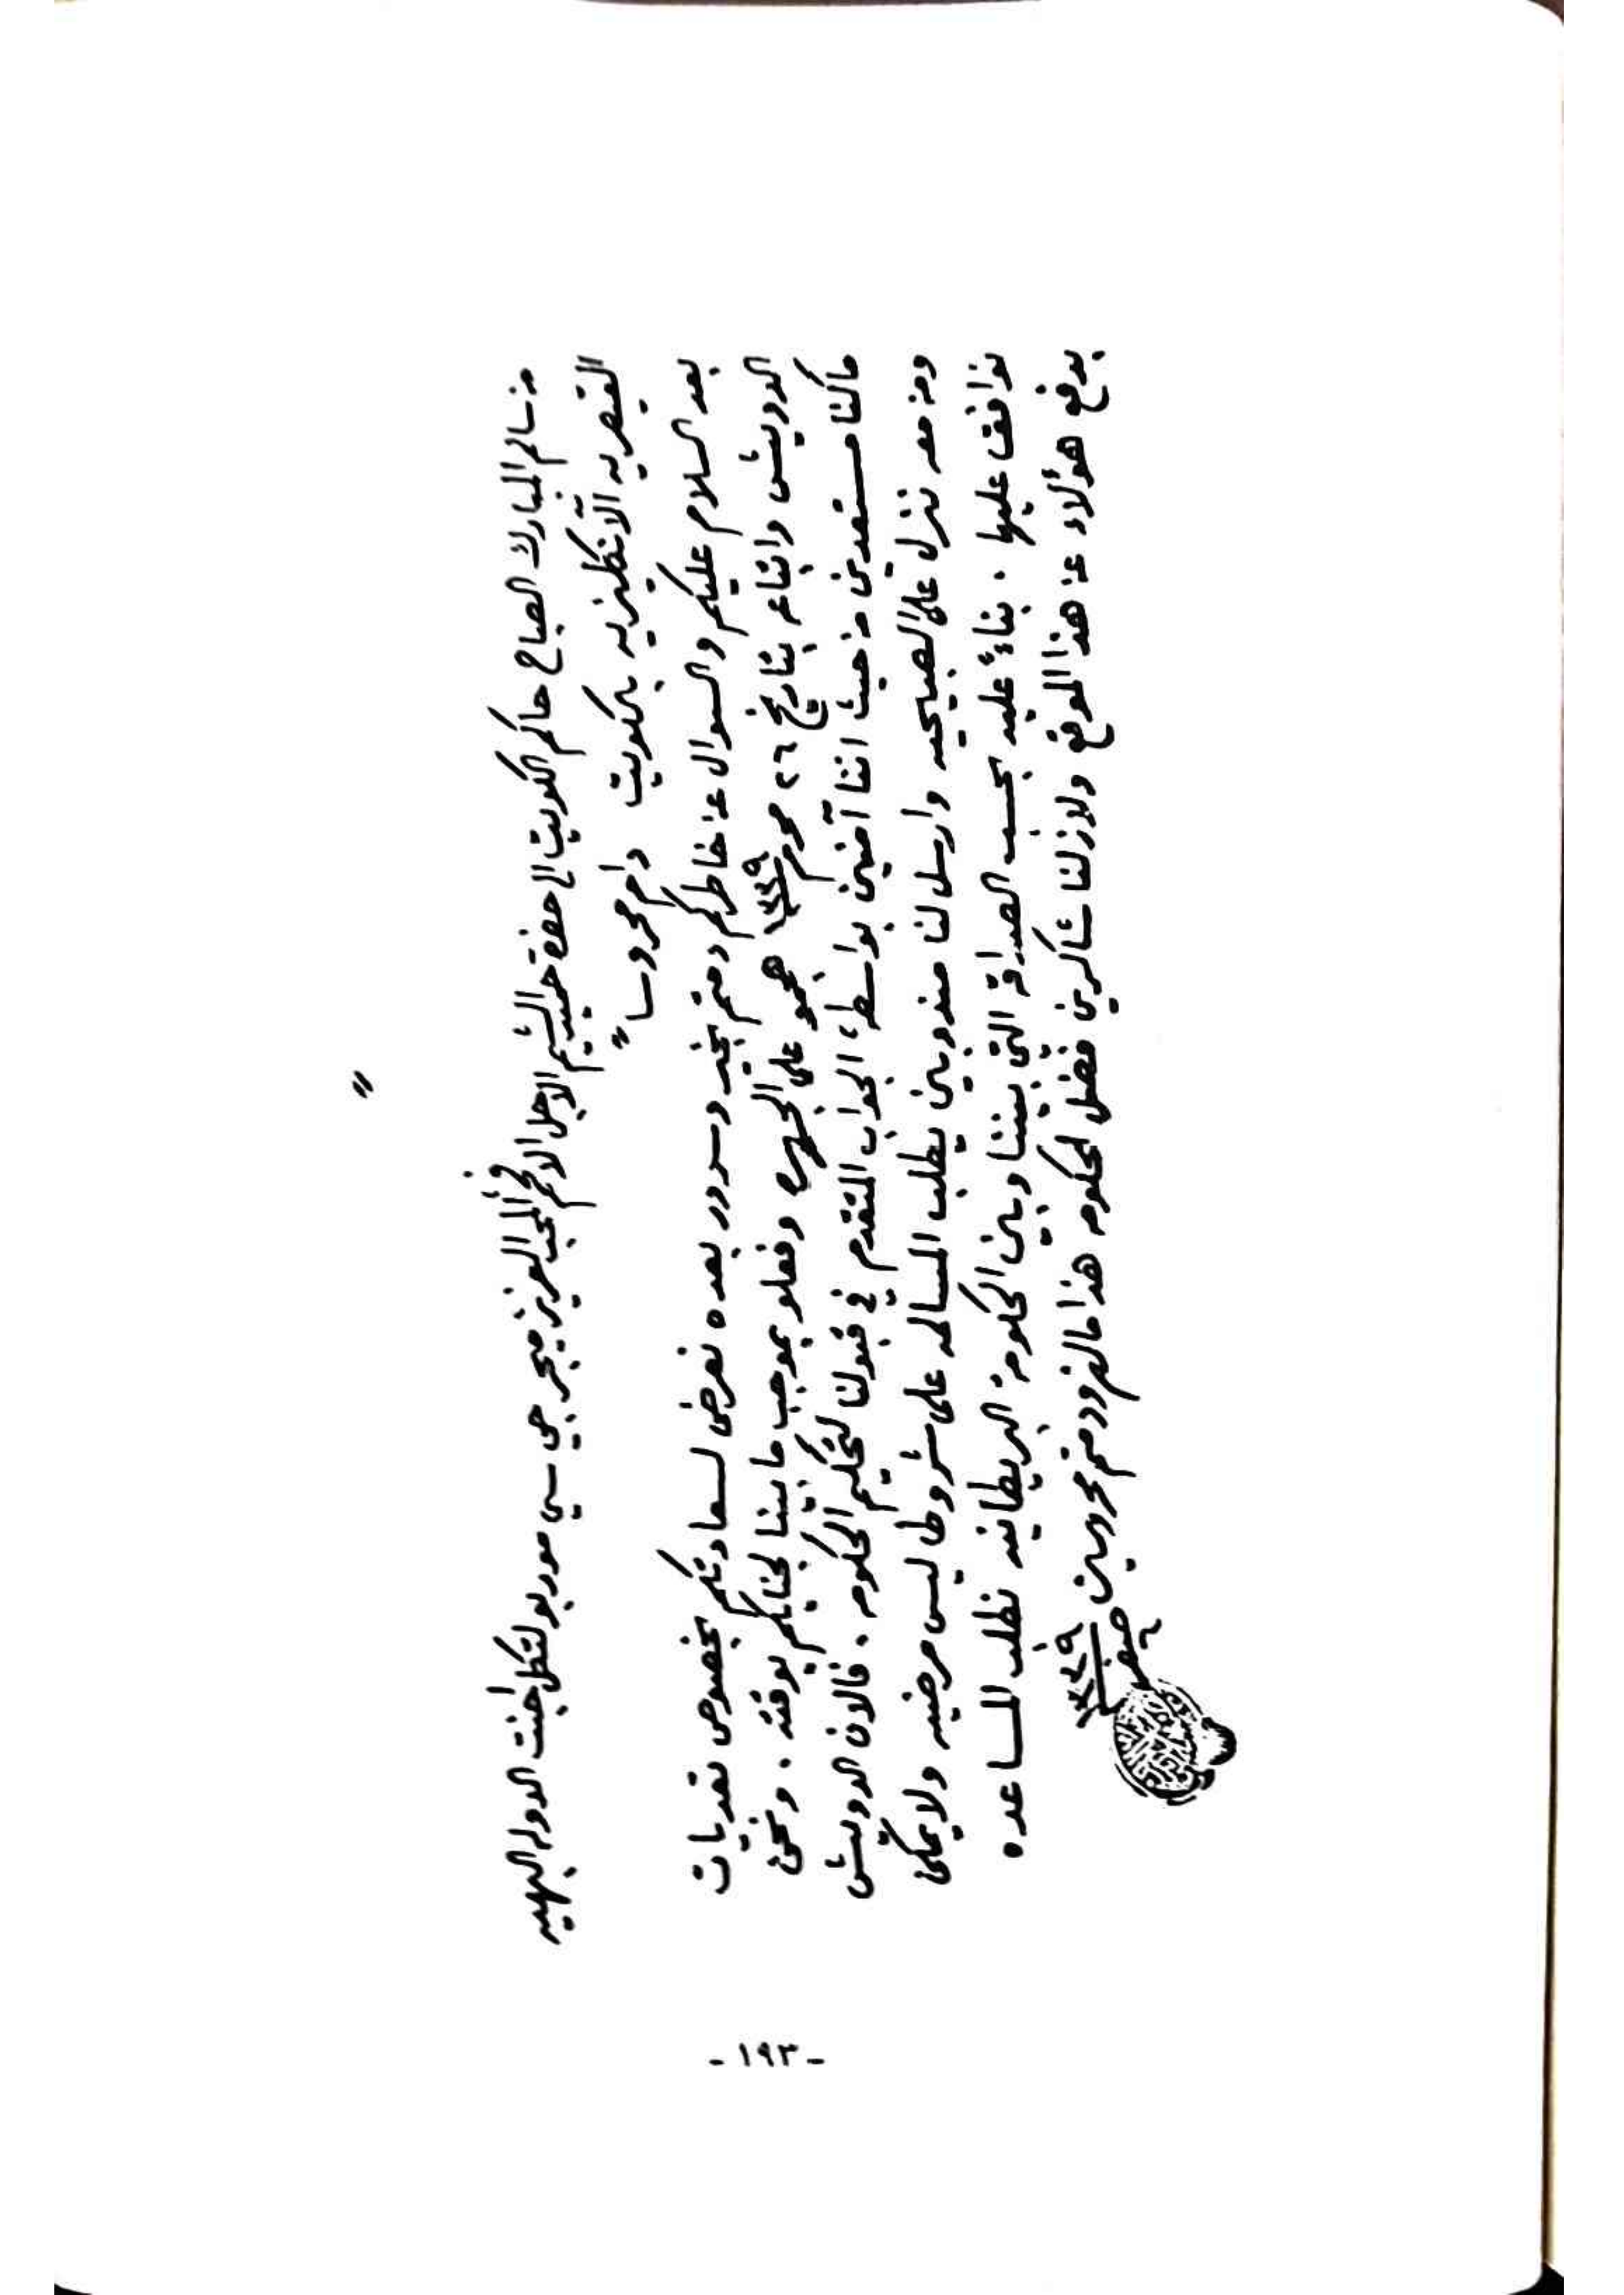 من سالم المبارك الصباح حاكم الكويت الى حضرة حميد الشيم الاجل الافخم المحب العزيز ميجر جي سي مور بولتكل اجنت الدوله البهيه
القيصريه الانكليزيه بالكويت دام محروساً
بعد السلام عليكم والسوال عن خاطركم دمتم بخير وسرور بعده نعرض لسعادتكم بخصوص تعديات
الدويش واتباعه بتاريخ ٢٦ محرم ١٣٣٩ هجمو على الجهره وفعلو بموجب ما بينا لجنابكم بوقته . ونحن
ماكنا مستعدين من حيث اننا آمنين بواسطة الجواب المتقدم في قبولنا لتحكيم الحكومه . فالان الدويش
ومن معه نزل على الصبيحيه وارسل لنا مندوبين يطلب المسالمه على شروط ليس مرضيه ولا يمكن
نوافق عليها . بناءً عليه بحسب الصداقه التي بيننا وبين الحكومة البريطانيه نطلب المساعده
بدفع هؤلاء عن هذا الموقع ولازلنا شاكرين فضل الحكومه هذا ما لزم ودمتم محروسين
صفر ١٣٣٩
- ١٩٣ -